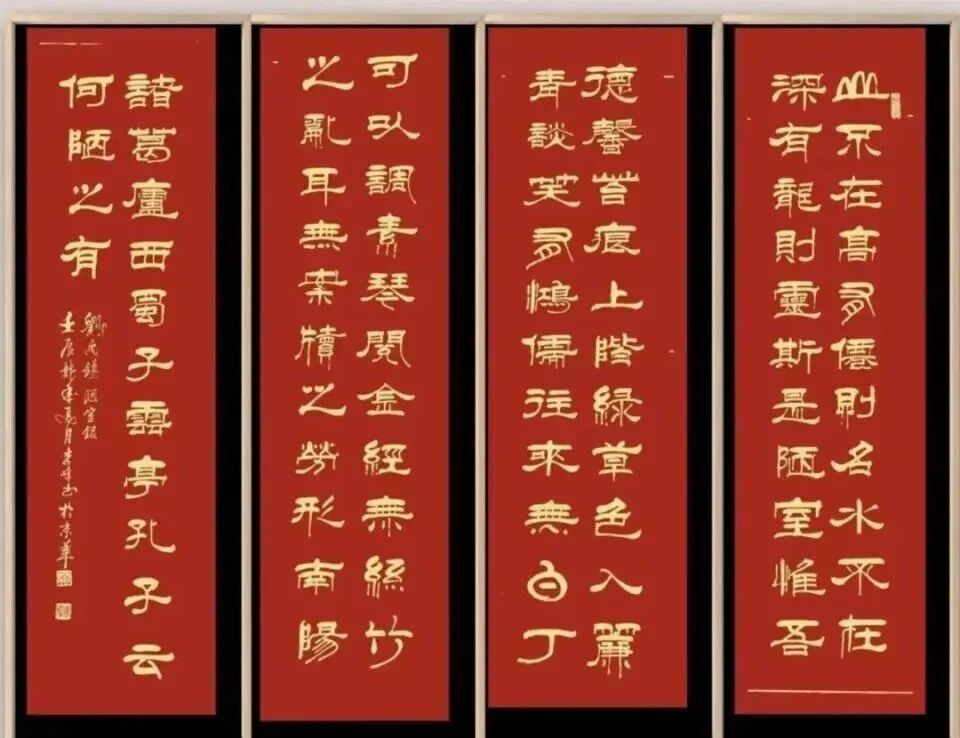 山不在高有僊則名水不在
深有龍則靈斯是陋室惟吾
德馨苔痕上階綠草色入簾
青談笑有鴻儒往來無白丁
可以調素琴閱金經無絲竹
之亂耳無案牘之勞形南陽
諸葛廬西蜀子雲亭孔子云
何陋之有
劉禹錫 陋室銘
壬辰龍年夏月李书於京華